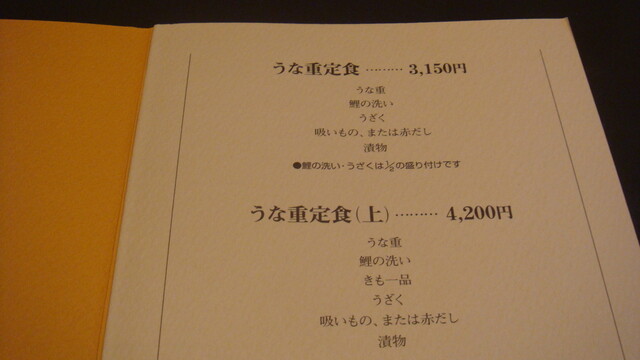 うな重定食 ……… 3,150円
うな重
鯉の洗い
うざく
吸いもの、または赤だし
漬物
●鯉の洗い・うざくは½の盛り付けです
うな重定食(上) ……… 4,200円
うな重
鯉の洗い
きも一品
うざく
吸いもの、または赤だし
漬物